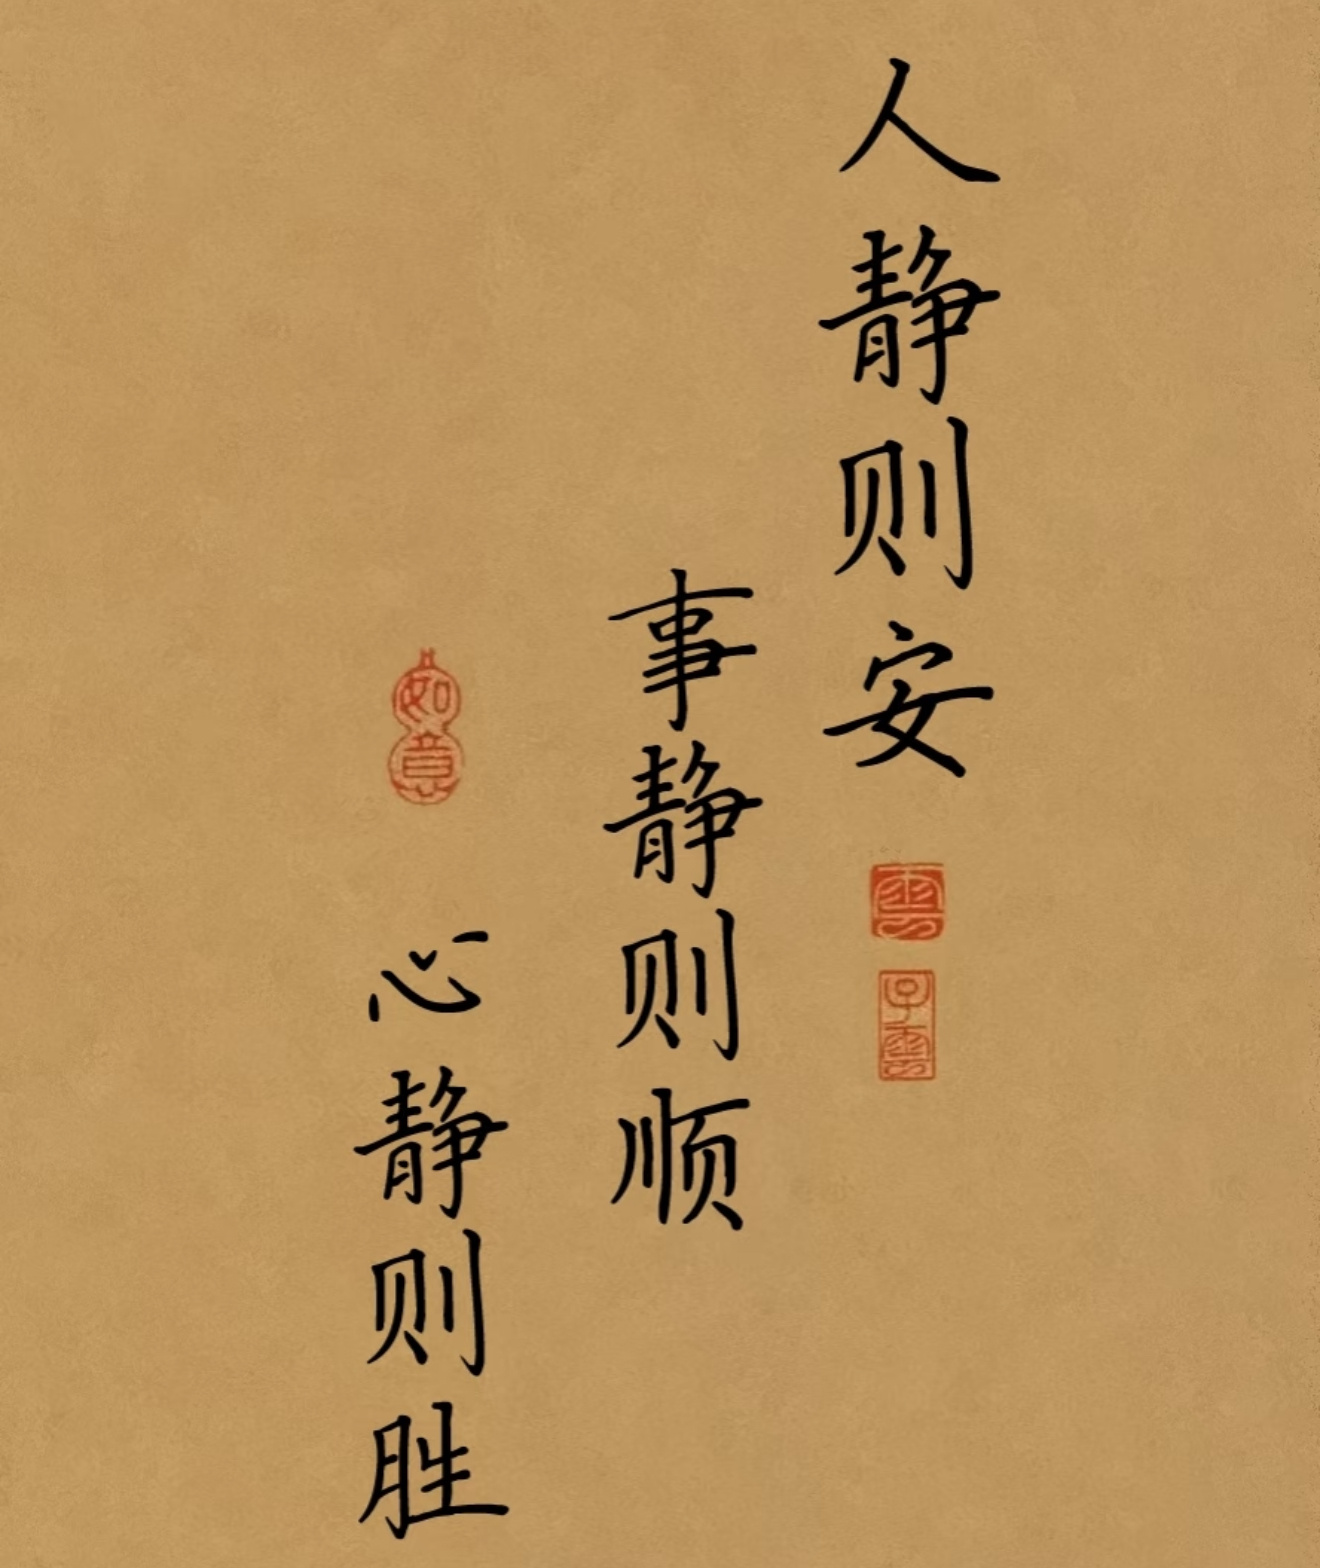 人静则安
雲
子雲
事静则顺
如意
心静则胜